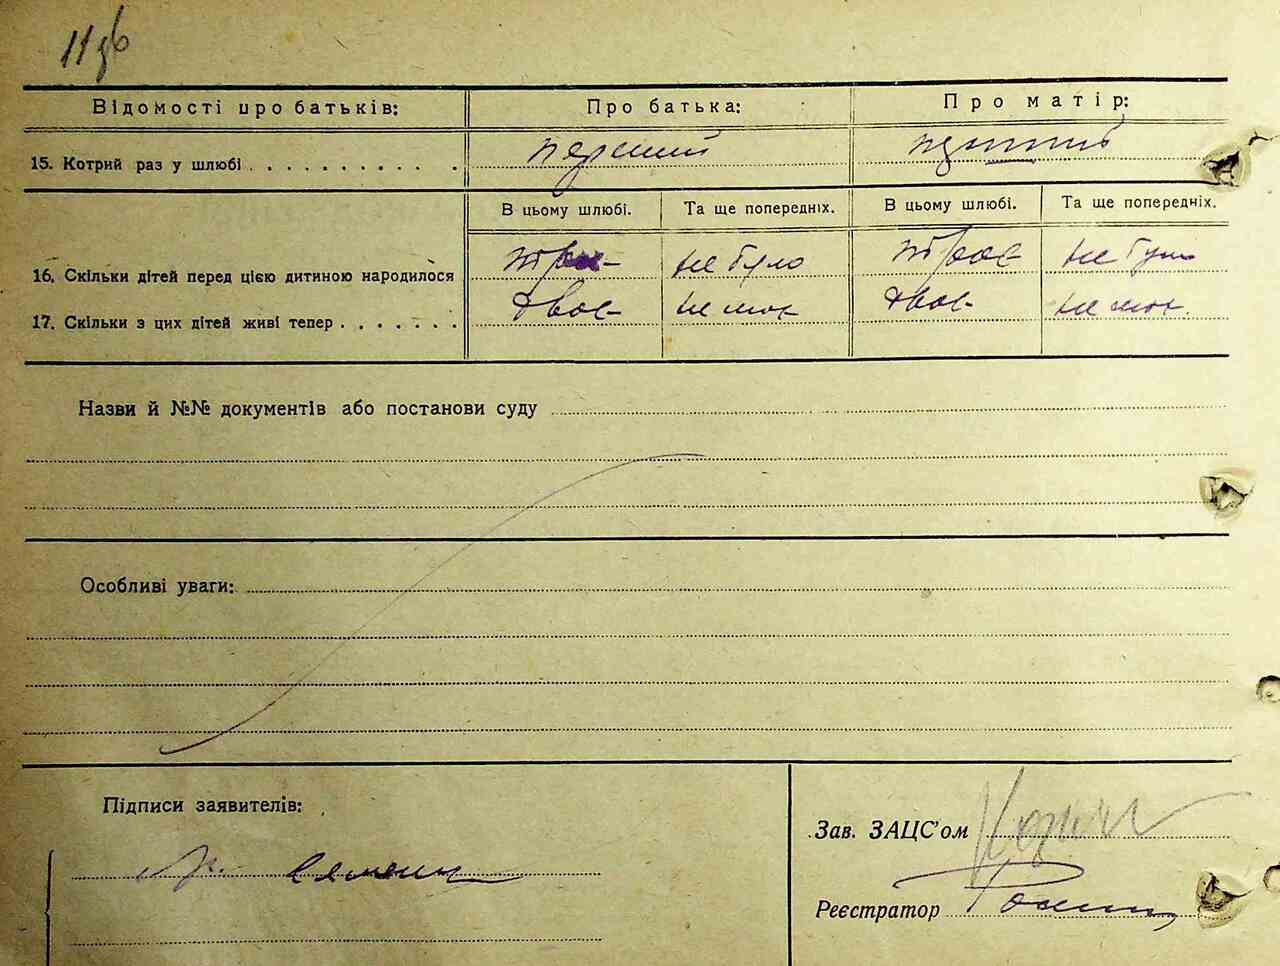 Відомості про батьків: Про батька: Про матір:
15. Котрий раз у шлюбі перший
В цьому шлюбі. Та ще попередніх. В цьому шлюбі. Та ще попередніх.
16. Скільки дітей перед цією дитиною народилося троє не було троє не було
17. Скільки з цих дітей живі тепер двоє немає двоє немає
Назви й №№ документів або постанови суду
Особливі уваги:
Підписи заявителів:
Зав. ЗАЦС'ом
Реєстратор